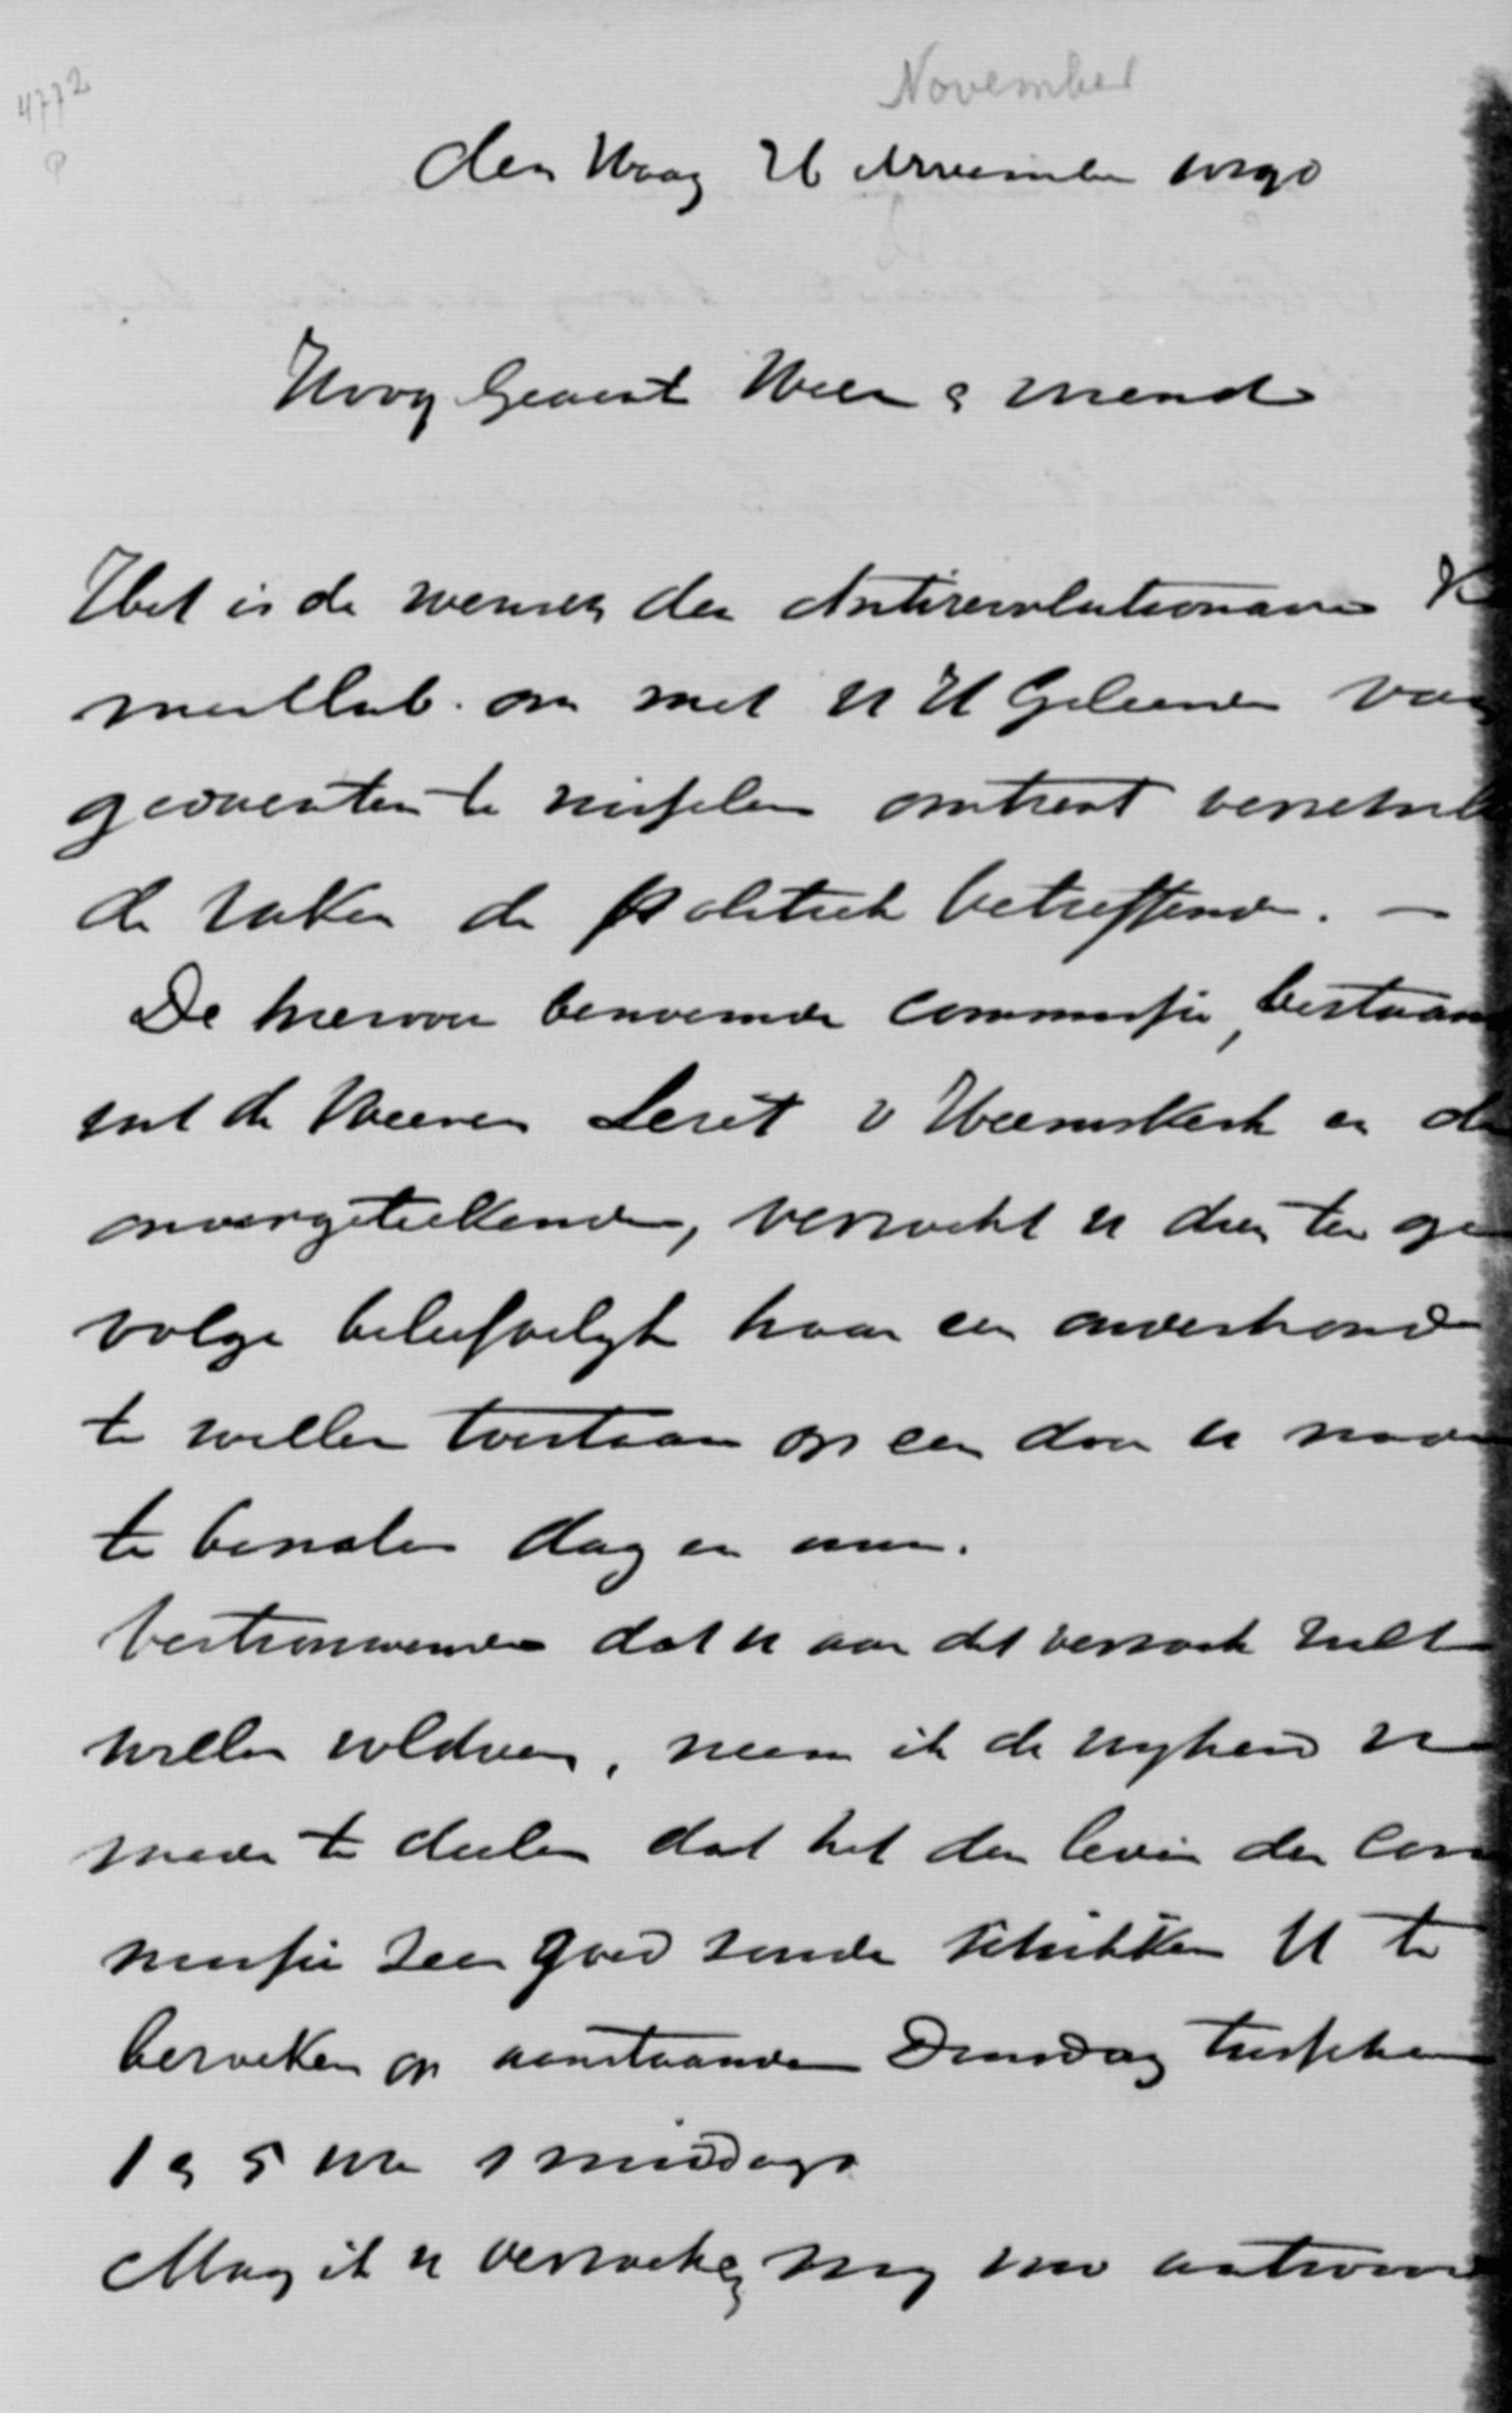 4772
P
November
den Haag 26 November 1890
Hoog Geacht Heer & Vriend
Het is de wensch der Antirevolutionaire K
merclub om met U H Geleerde van
gedachten te wisselen omtrent verschil
de zaken de politiek betreffende. —
De hiervoor benoemde commissie, bestaan
uit de Heeren Seret v Heemskerk en de
ondergeteekende, verzoekt u dien ten ge
volge beleefdelyk haar een onderhoud
te willen toestaan op een door u nader
te bepalen dag en uur.
Vertrouwende dat u aan dit verzoek zult
willen voldoen, neem ik de vryheid u
mede te deelen dat het den leden der com
missie zeer goed zoude schikken U te
bezoeken op aanstaanden Dinsdag tusschen
1 & 5 ure s middags
Mag ik u verzoeken my uw antwoord